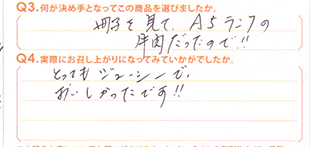 Q3.何が決め手となってこの商品を選びましたか。
冊子を見て、A5ランクの
牛肉だったので!!
Q4.実際にお召し上がりになってみていかがでしたか。
とってもジューシーで、
おいしかったです!!